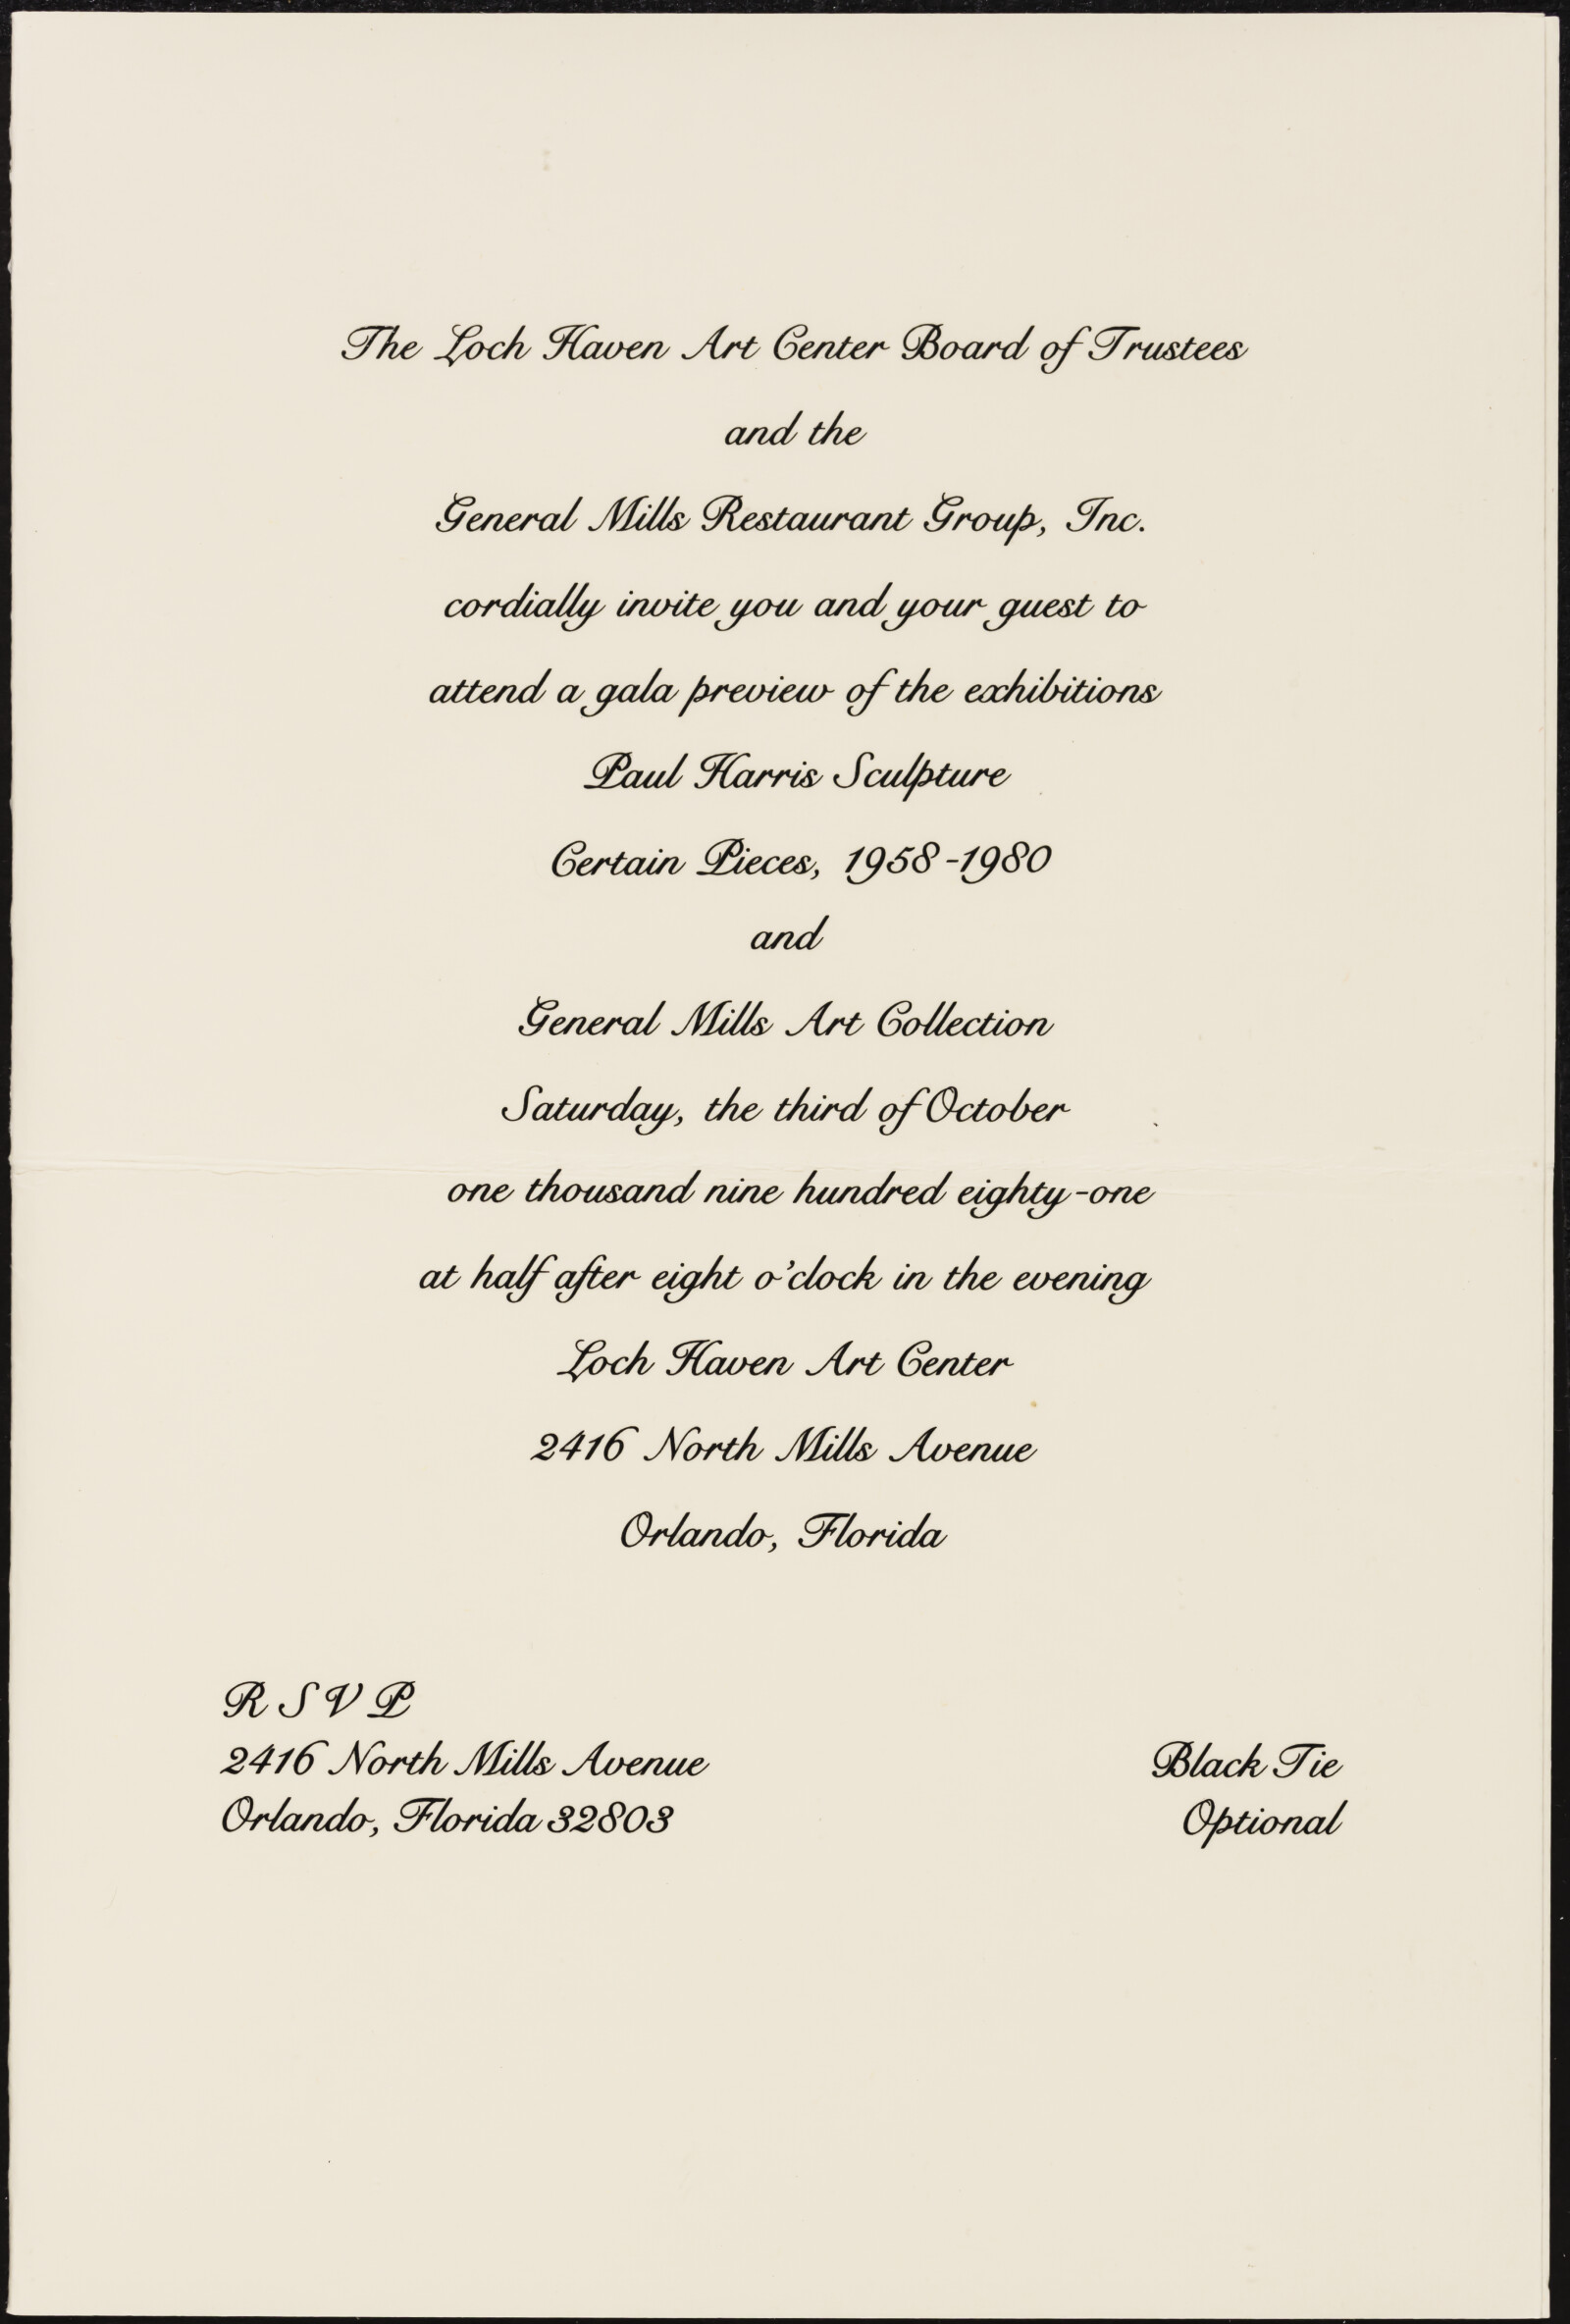 The Loch Haven Art Center Board of Trustees
and the
General Mills Restaurant Group, Inc.
cordially invite you and your guest to
attend a gala preview of the exhibitions
Paul Harris Sculpture
Certain Pieces, 1958-1980
and
General Mills Art Collection
Saturday, the third of October
one thousand nine hundred eighty-one
at half after eight o'clock in the evening
Loch Haven Art Center
2416 North Mills Avenue
Orlando, Florida
R S V P
2416 North Mills Avenue
Orlando, Florida 32803
Black Tie
Optional